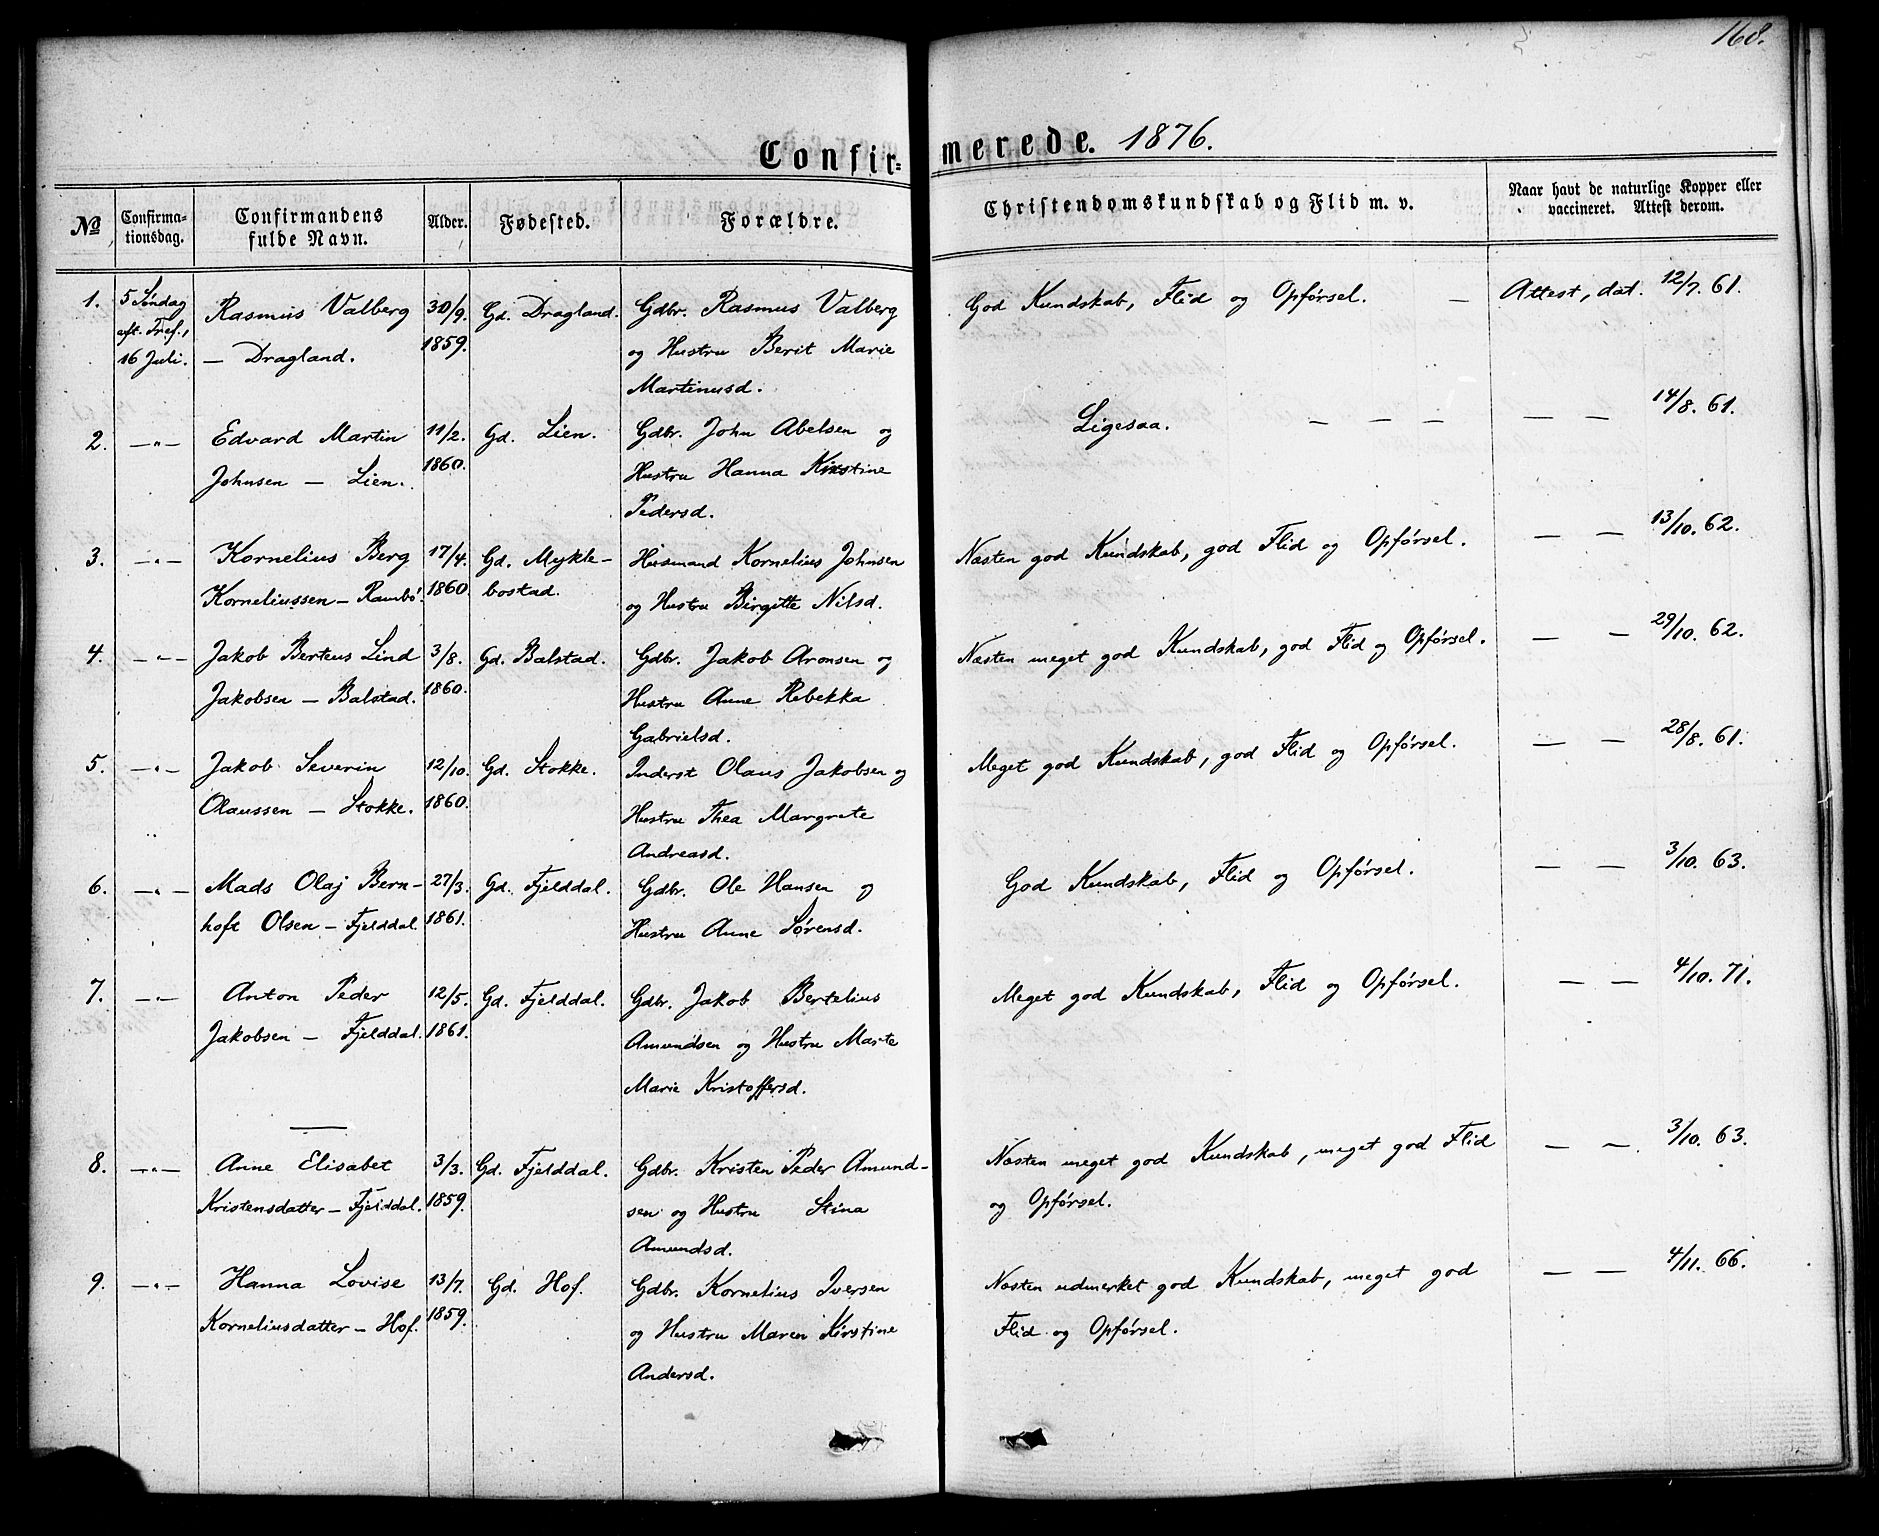 168.
Confir= merede. 1876.
No
Confirma-
tionsdag.
Confirmandens
fulde Navn.
Alder.
Fødested.
Forældre.
Christendomskundskab og Flid m. v.
Naar havt de naturlige Kopper eller
vaccineret. Attest derom.
1. 5 Søndag Rasmus Valberg 30/9. Gd. Dragland. Gdbr. Rasmus Valberg God Kundskab, Flid og Opførsel. — Attest, dat. 12/7. 61.
eft. Tref., — Dragland. 1859. og Hustru Berit Marie
16 Juli. Martinusd.
2. —"— Edvard Martin 11/2. Gd. Lien. Gdbr. John Abelsen og Ligesaa. — — — — — 14/8. 61.
Johnsen — Lien. 1860. Hustru Hanna Kirstine
Pedersd.
3. —"— Kornelius Berg 17/4. Gd. Mykle- Husmand Kornelius Johnsen Næsten god Kundskab, god Flid og Opførsel. — — 13/10. 62.
Korneliussen — Rambö. 1860. bostad. og Hustru Birgitte Nilsd.
4. —"— Jakob Berteus Lind 3/8. Gd. Balstad. Gdbr. Jakob Aronsen og Næsten meget god Kundskab, god Flid og Opførsel. — — 29/10. 62.
Jakobsen — Balstad. 1860. Hustru Anne Rebekka
Gabrielsd.
5. —"— Jakob Severin 12/10. Gd. Stokke. Inderst Olaus Jakobsen og Meget god Kundskab, god Flid og Opførsel. — — 28/8. 61.
Olaussen — Stokke. 1860. Hustru Thea Margrete
Andreasd.
6. —"— Mads Olaj Bern- 27/3. Gd. Fjelddal. Gdbr. Ole Hansen og God Kundskab, Flid og Opførsel. — — 3/10. 63.
hoft Olsen — Fjelddal. 1861. Hustru Anne Sørensd.
7. —"— Anton Peder 12/5. Gd. Fjelddal. Gdbr. Jakob Bertelius Meget god Kundskab, Flid og Opførsel. — — 4/10. 71.
Jakobsen — Fjelddal. 1861. Amundsen og Hustru Marte
Marie Kristoffersd.
8. —"— Anne Elisabet 3/3. Gd. Fjelddal. Gdbr. Kristen Peder Amund- Næsten meget god Kundskab, meget god Flid — — 3/10. 63.
Kristensdatter — Fjelddal. 1859. sen og Hustru Stina og Opførsel.
Amundsd.
9. —"— Hanna Lovise 13/7. Gd. Hof. Gdbr. Kornelius Iversen Næsten udmerket god Kundskab, meget god — — 4/11. 66.
Korneliusdatter — Hof. 1859. og Hustru Maren Kirstine Flid og Opførsel.
Andersd.